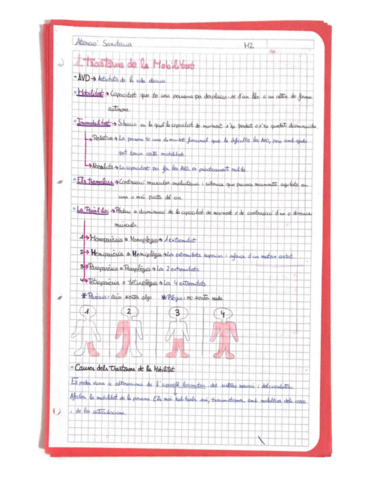 Atenció Sanitària M2
1. Trastorns de la Mobilitat
- AVD → Activitats de la vida diària
- Mobilitat → Capacitat que té una persona per desplaçar-se d'un lloc a un altre de forma
autònoma.
- Immobilitat → Situació en la qual la capacitat de moviment s'ha perdut o s'ha quedat disminuïda.
→ Relativa: La persona té una disminució funcional que le dificulta les AVD, però amb ajuda
pot tenir certa mobilitat.
→ Absoluta: La capacitat per fer les AVD es pràcticament nul·la.
- Els tremolors → Contraccions musculars involuntàries
una o més parts del cos.
- La Paràlisi → Pèrdua o disminució de la capacitat de moviment o de contracció d'un o diversos
músculs.
1 → Monoparèsia o Monoplègia → 1 extremitat
2 → Hemiparèsia o Hemiplègia → Les extremitats
3 → Paraparèsia o Paraplègia → Les 2 extremitats
4 → Tetraparèsia o Tetraplègia → Les 4 extremitats
* Parèsia: algo * Plègia: no nada
1 2 3 4
- Causes dels Trastorns de la Mobilitat
Es poden deure a alteracions de l'aparell locomotor, del sistema nerviós
Afecten la mobilitat de la persona. Els més habituals són, traumatismes, amb
de les articulacions.